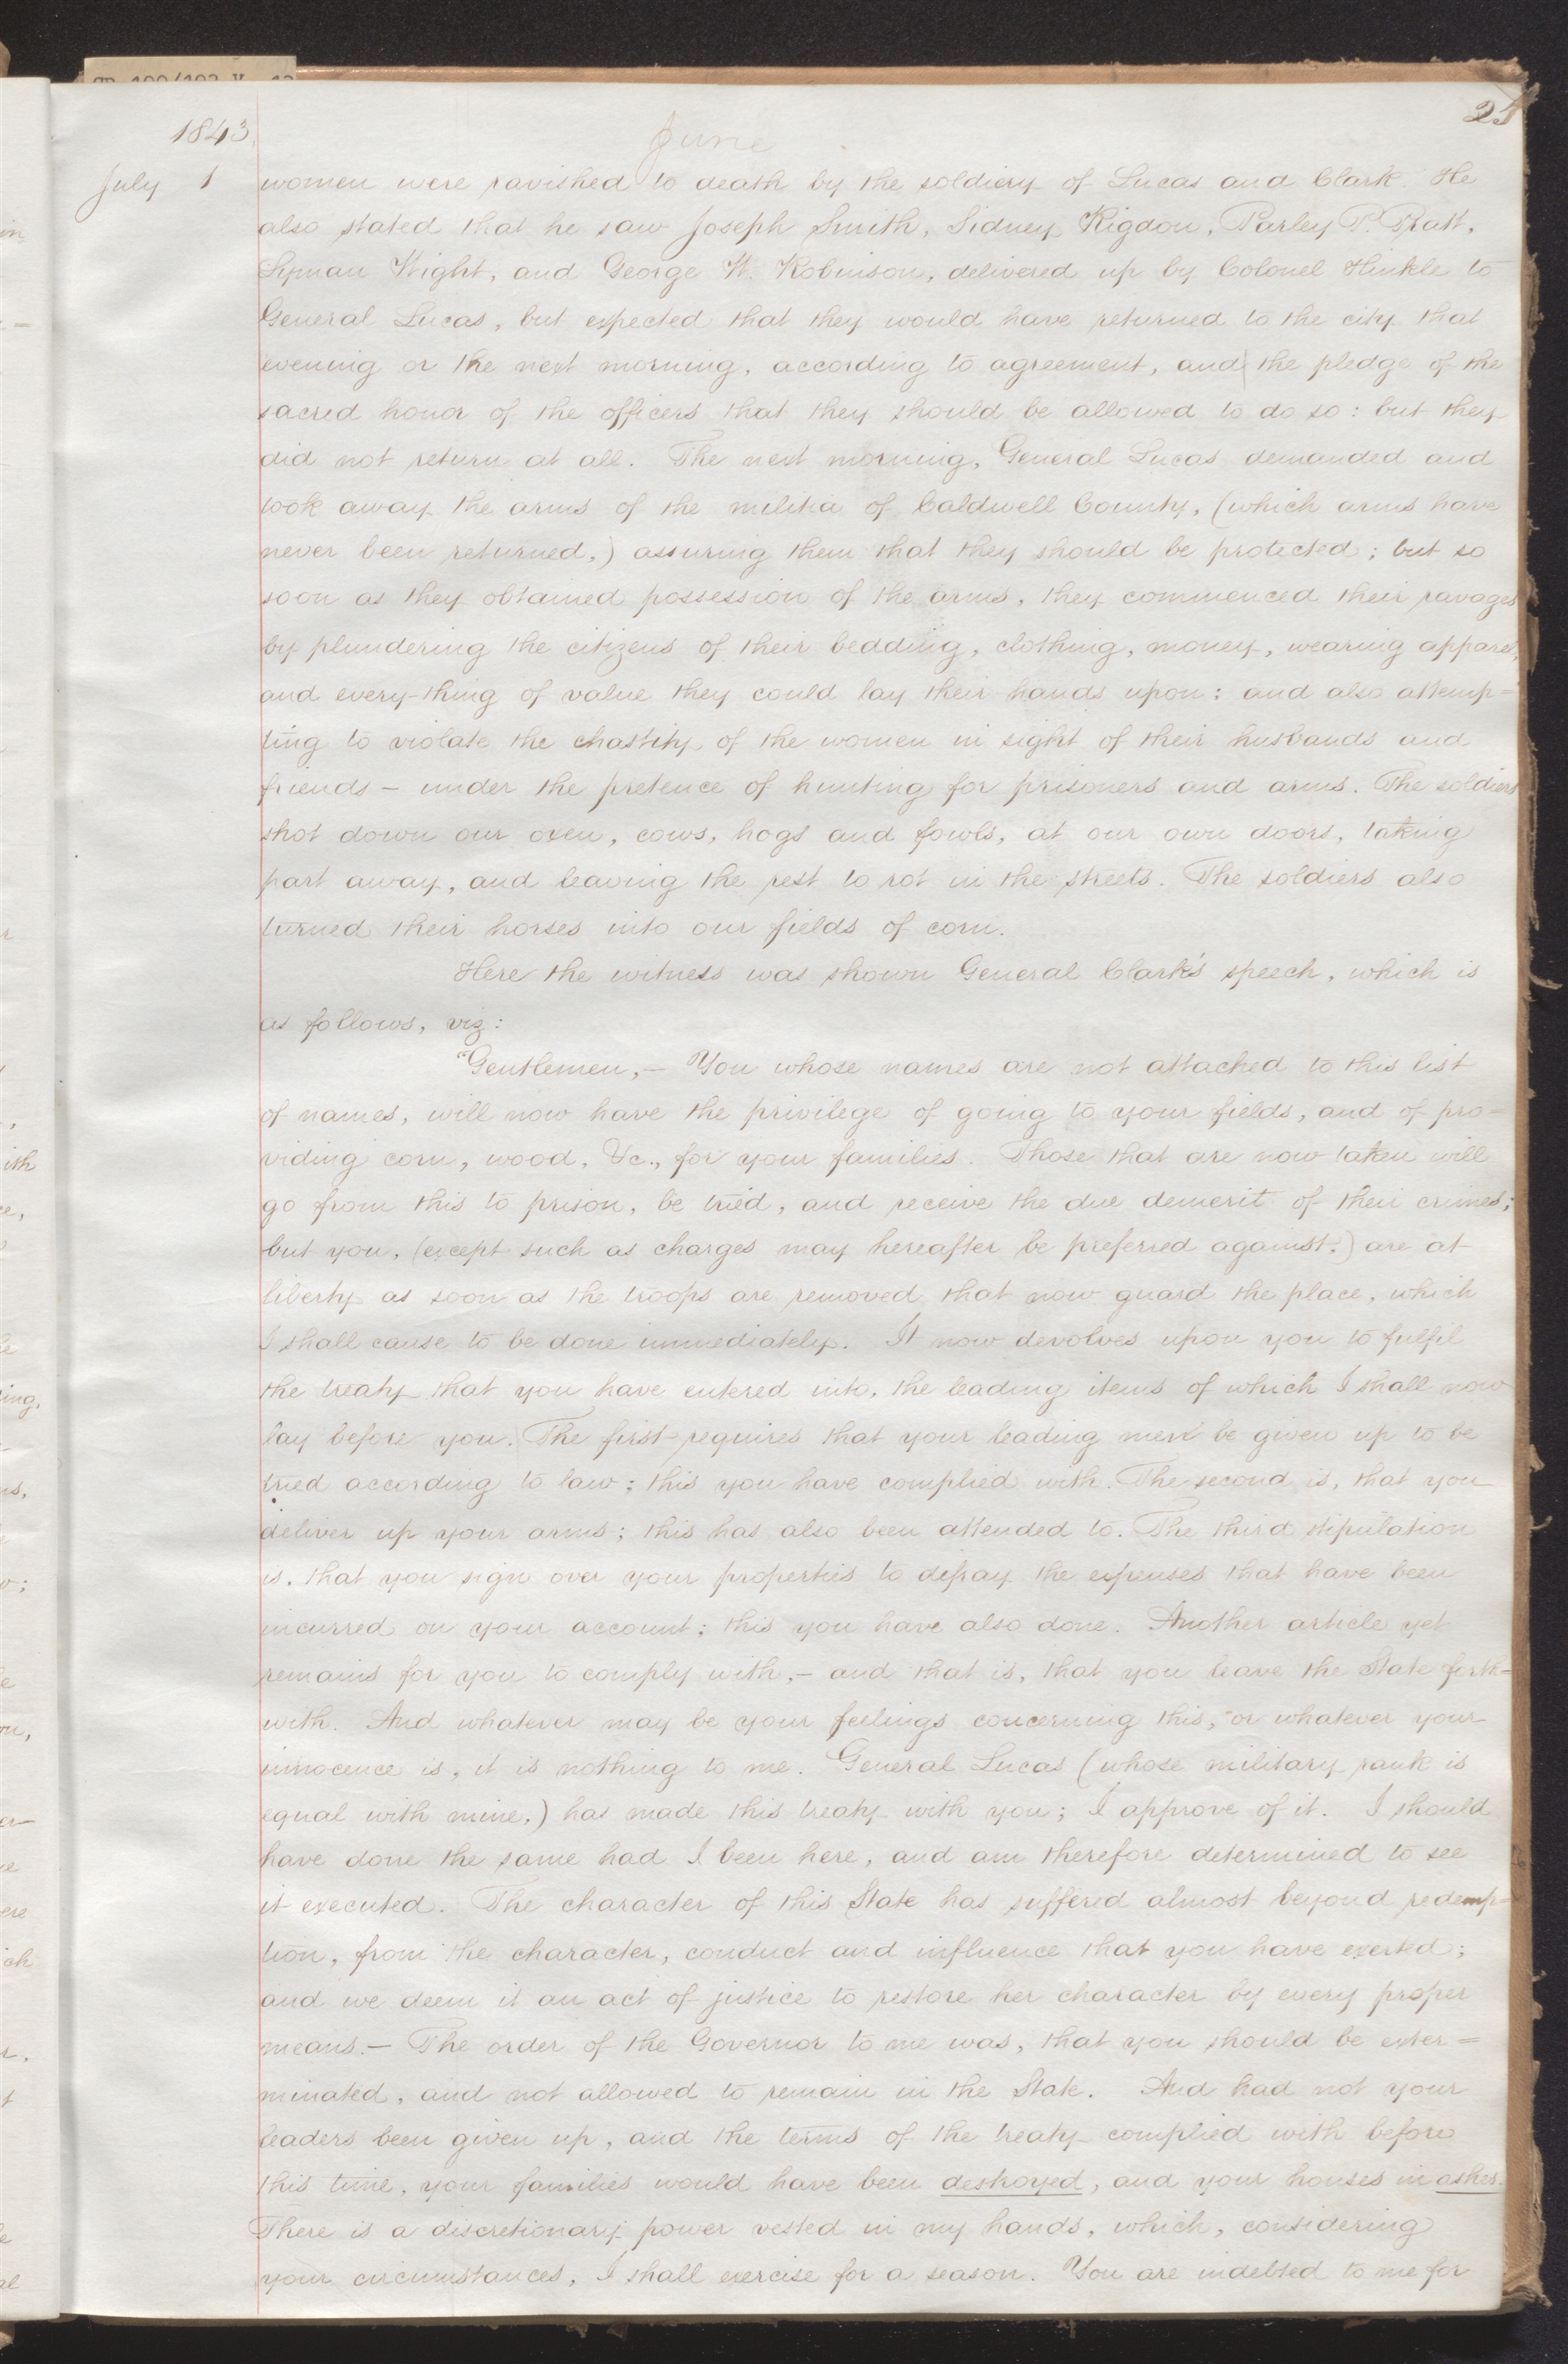 1843.
June
July 1 women were ravished to death by the soldiery of Lucas and Clark. He
also stated that he saw Joseph Smith, Sidney Rigdon, Parley P. Pratt,
Lyman Wight, and George W. Robinson, delivered up by Colonel Hinkle to
General Lucas, but expected that they would have returned to the city that
evening or the next morning, according to agreement, and the pledge of the
sacred honor of the officers that they should be allowed to do so: but they
did not return at all. The next morning, General Lucas demanded and
took away the arms of the militia of Caldwell County, (which arms have
never been returned,) assuring them that they should be protected; but so
soon as they obtained possession of the arms, they commenced their ravages
by plundering the citizens of their bedding, clothing, money, wearing apparel,
and every-thing of value they could lay their hands upon: and also attemp=
ting to violate the chastity of the women in sight of their husbands and
friends — under the pretence of hunting for prisoners and arms. The soldiers
shot down our oxen, cows, hogs and fowls, at our own doors, taking
part away, and leaving the rest to rot in the streets. The soldiers also
turned their horses into our fields of corn.
Here the witness was shown General Clark's speech, which is
as follows, viz:
"Gentlemen,— You whose names are not attached to this list
of names, will now have the privilege of going to your fields, and of pro=
viding corn, wood, &c., for your families. Those that are now taken will
go from this to prison, be tried, and receive the due demerit of their crimes;
but you, (except such as charges may hereafter be preferred against,) are at
liberty as soon as the troops are removed that now guard the place, which
I shall cause to be done immediately. It now devolves upon you to fulfil
the treaty that you have entered into, the leading items of which I shall now
lay before you. The first requires that your leading men be given up to be
tried according to law; this you have complied with. The second is, that you
deliver up your arms; this has also been attended to. The third stipulation
is, that you sign over your properties to defray the expenses that have been
incurred on your account; this you have also done. Another article yet
remains for you to comply with,— and that is, that you leave the State forth=
with. And whatever may be your feelings concerning this, or whatever your
innocence is, it is nothing to me. General Lucas (whose military rank is
equal with mine,) has made this treaty with you; I approve of it. I should
have done the same had I been here, and am therefore determined to see
it executed. The character of this State has suffered almost beyond redemp=
tion, from the character, conduct and influence that you have exerted;
and we deem it an act of justice to restore her character by every proper
means.— The order of the Governor to me was, that you should be exter=
minated, and not allowed to remain in the State. And had not your
leaders been given up, and the terms of the treaty complied with before
this time, your families would have been destroyed, and your houses in ashes.
There is a discretionary power vested in my hands, which, considering
your circumstances, I shall exercise for a season. You are indebted to me for